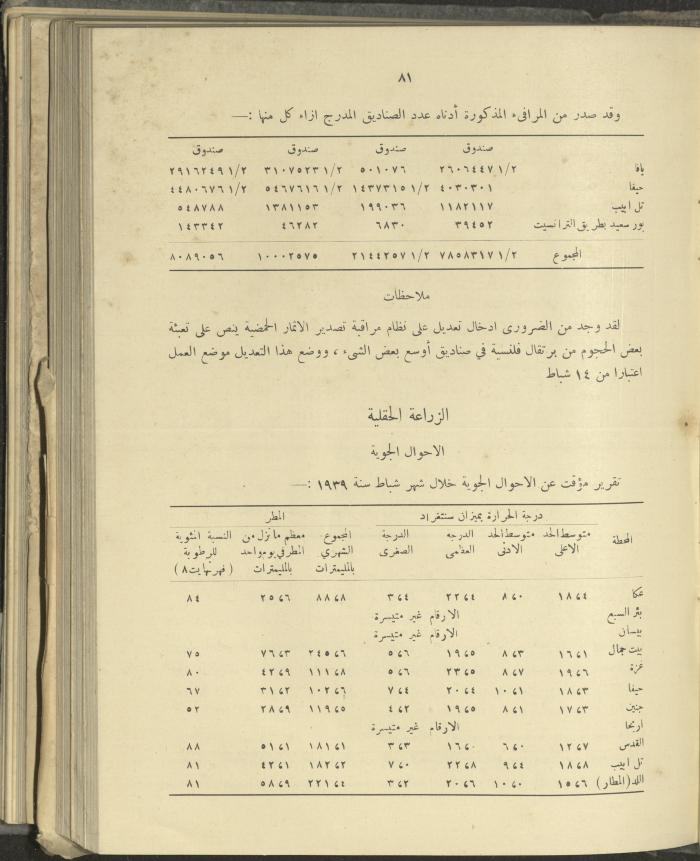 ٨١
وقد صدر من المرافىء المذكورة أدناه عدد الصناديق المدرج ازاء كل منها :—
صندوق صندوق صندوق
يافا ٢٦٠٦٤٤٧ ١/٢ ٥٠١٠٧٦ ٣١٠٧٥٢٣ ١/٢ ٢٩١٦٢٤٩ ١/٢
حيفا ٤٠٣٠٣٠١ ١٤٣٧٣١٥ ١/٢ ٥٤٦٧٦١٦ ١/٢ ٤٤٨٠٦٧٦ ١/٢
تل ابيب ١١٨٢١١٧ ١٩٩٠٣٦ ١٣٨١١٥٣ ٥٤٨٧٨٨
بور سعيد بطريق الترانسيت ٣٩٤٥٢ ٦٨٣٠ ٤٦٢٨٢ ١٤٣٣٤٢
المجموع ٧٨٥٨٣١٧ ١/٢ ٢١٤٤٢٥٧ ١/٢ ١٠٠٠٢٥٧٥ ٨٠٨٩٠٥٦
ملاحظات
لقد وجد من الضرورى ادخال تعديل على نظام مراقبة تصدير الاثمار الحمضية ينص على تعبئة
بعض الحجوم من برتقال فلنسية في صناديق أوسع بعض الشىء ، ووضع هذا التعديل موضع العمل
اعتبارا من ١٤ شباط
الزراعة الحقلية
الاحوال الجوية
تقرير مؤقت عن الاحوال الجوية خلال شهر شباط سنة ١٩٣٩ :—
درجة الحرارة بميزان سنتغراد المطر
المحطة متوسط الحد متوسط الحد الدرجه الدرجة المجموع معظم مانزل من النسبة المئوية
الاعلى الادنى العظمى الصغرى الشهري المطر في يوم واحد للرطوبة
بالمليمترات بالمليمترات ( فهرنهايت ٨ )
عكا ١٨،٤ ٨،٠ ٢٢،٤ ٣،٤ ٨٨،٨ ٢٥،٦ ٨٤
بئر السبع الارقام غير متيسرة
بيسان الارقام غير متيسرة
بيت جمال ١٦،١ ٨،٣ ١٩،٥ ٥،٦ ٢٤٥،٦ ٧٦،٣ ٧٥
غزة ١٩،٦ ٨،٧ ٢٣،٥ ٥،٦ ١١١،٨ ٤٢،٩ ٨٠
حيفا ١٨،٣ ١٠،١ ٢٠،٤ ٧،٤ ١٠٢،٦ ٣١،٢ ٦٧
جنين ١٧،٣ ٨،١ ١٩،٥ ٤،٢ ١١٩،٥ ٢٨،٩ ٥٢
اريحا الارقام غير متيسرة
القدس ١٢،٧ ٦،٠ ١٦،٠ ٣،٣ ١٨١،١ ٥١،١ ٨٨
تل ابيب ١٨،٨ ٩،٤ ٢٢،٨ ٧،٠ ١٨٢،٢ ٤٢،١ ٨١
اللد ( المطار ) ١٥،٦ ١٠،٠ ٢٠،٦ ٣،٢ ٢٢١،٤ ٥٨،٩ ٨١